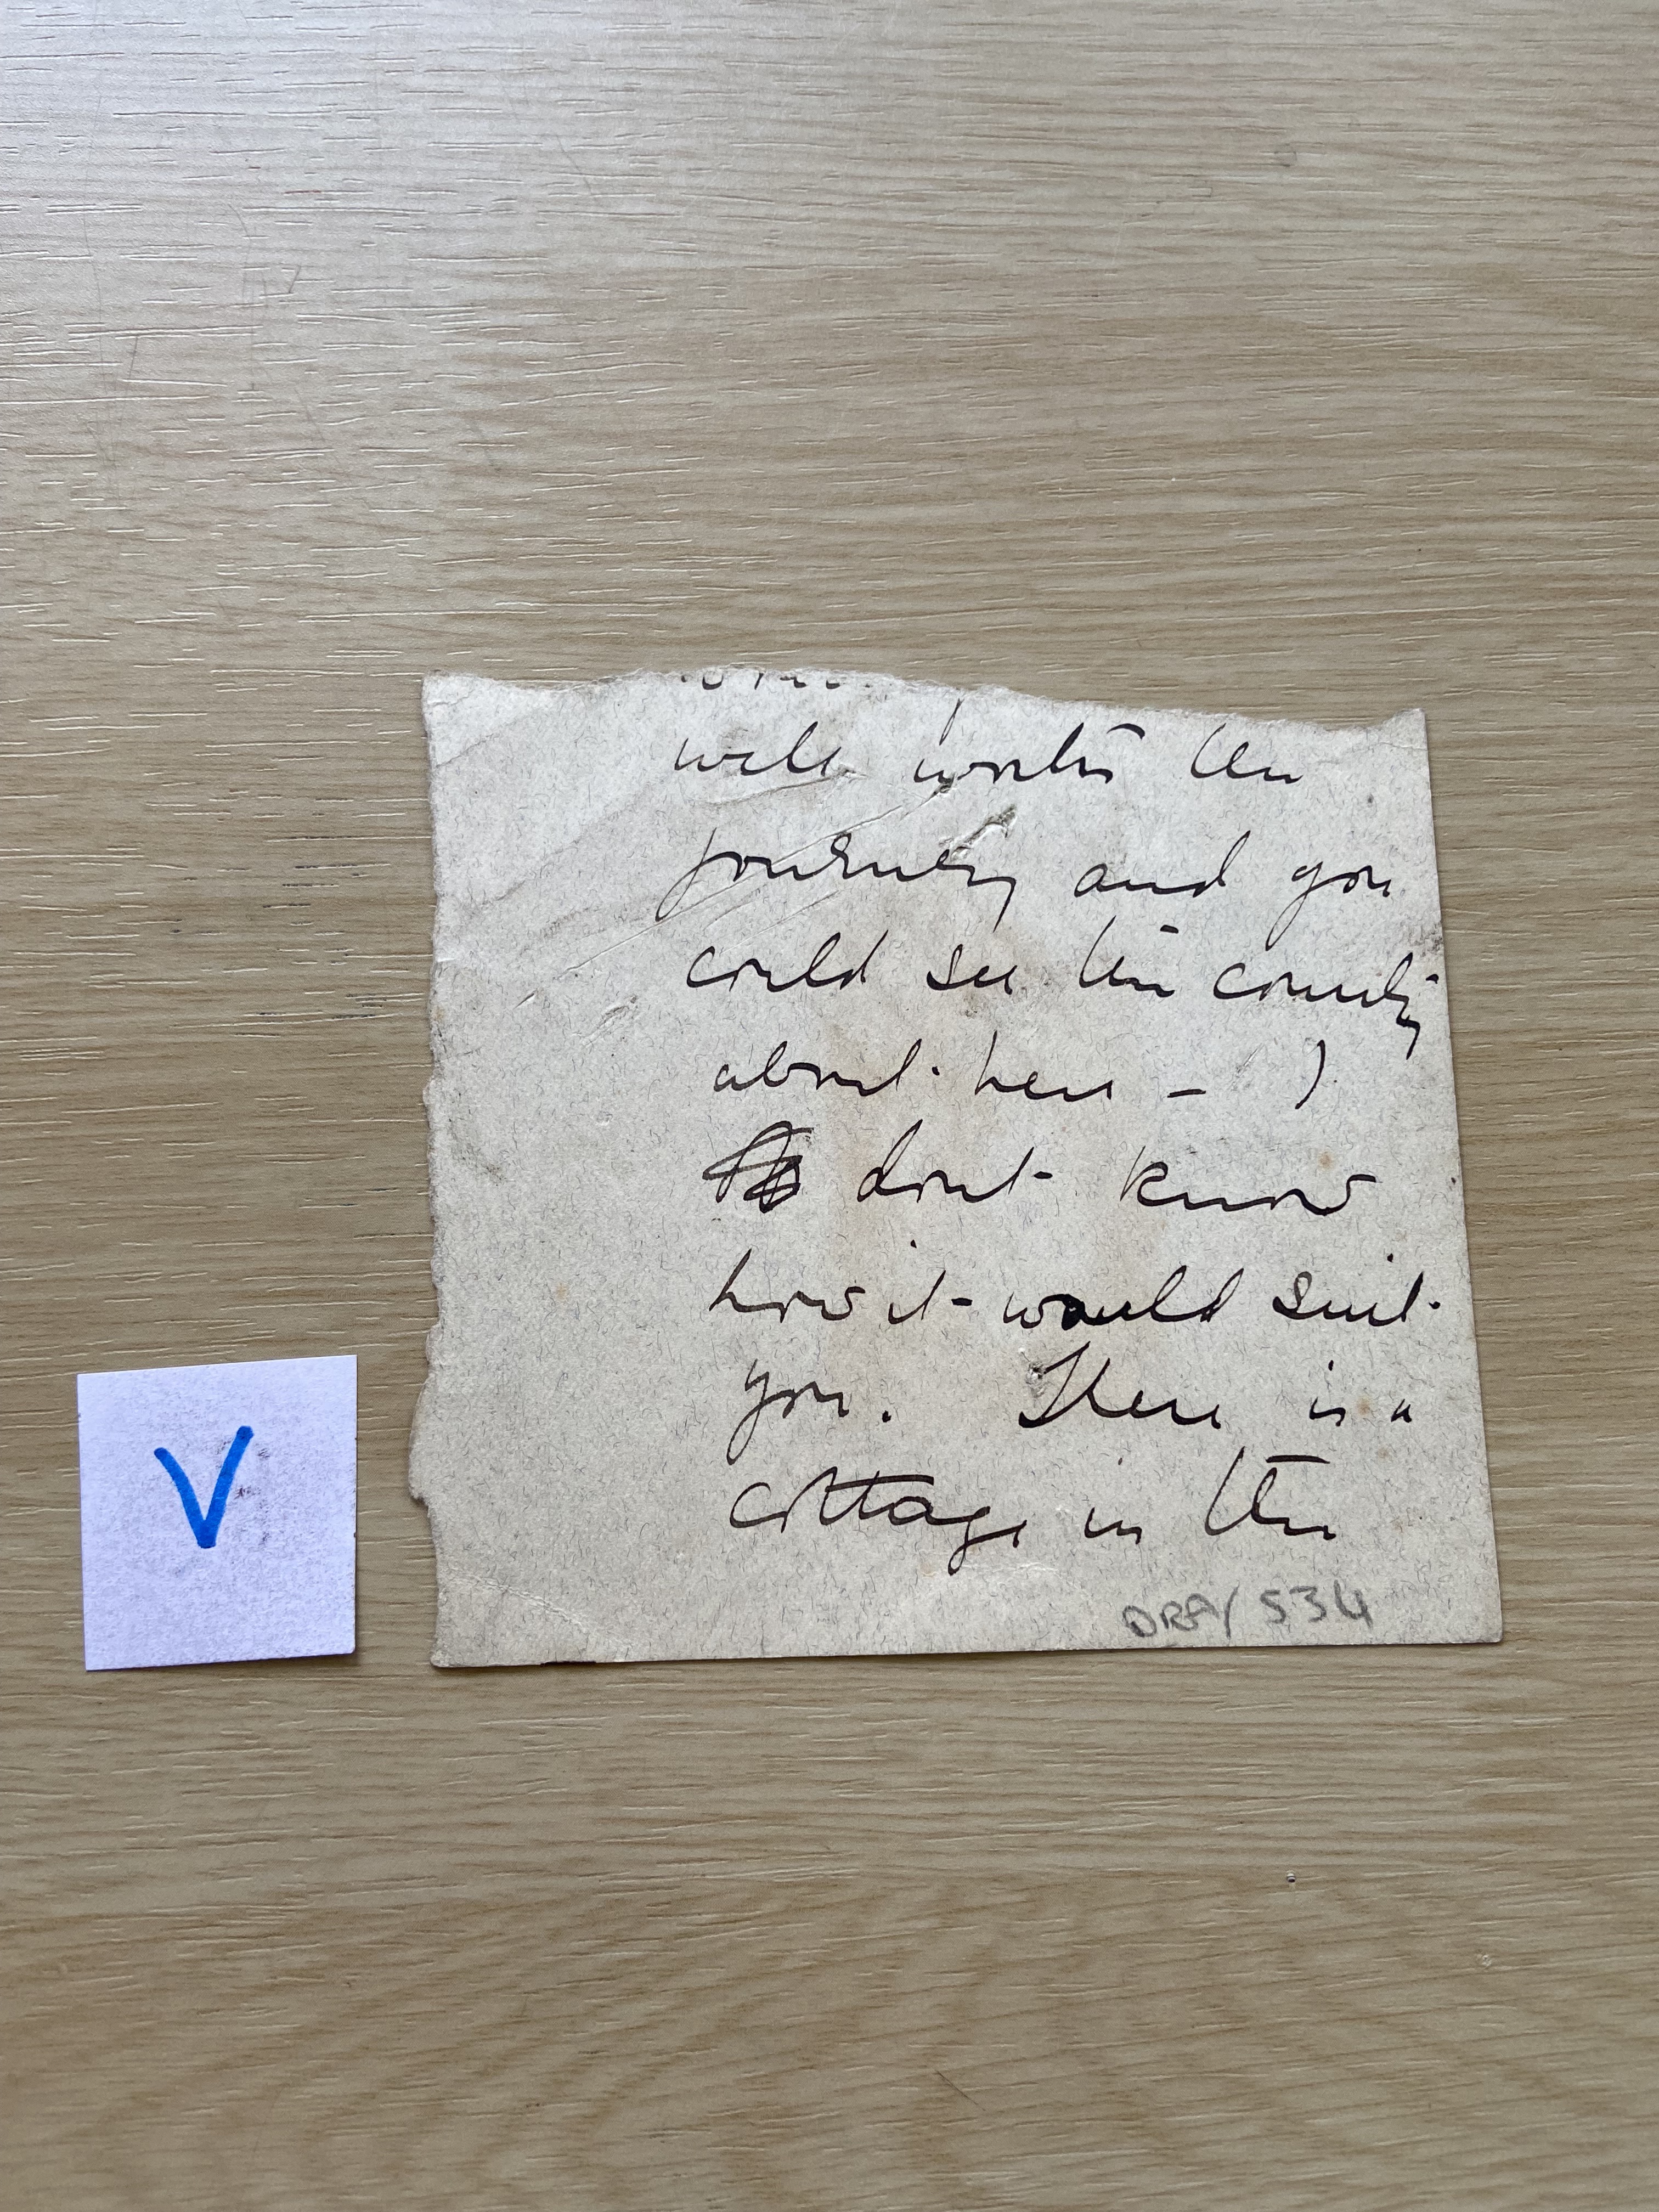 well worth the
journey and you
could see the country
about here – I
dont know
how it would suit
you. There is a
cottage in the
DRA/534
V